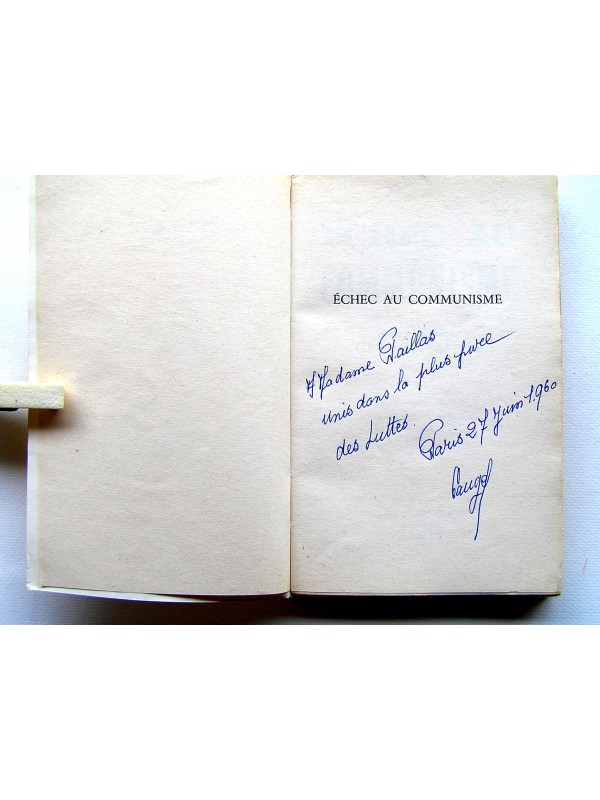 ÉCHEC AU COMMUNISME
Madame Paillas
unis dans la plus
des Luttes.
Paris 27 Juin 1960